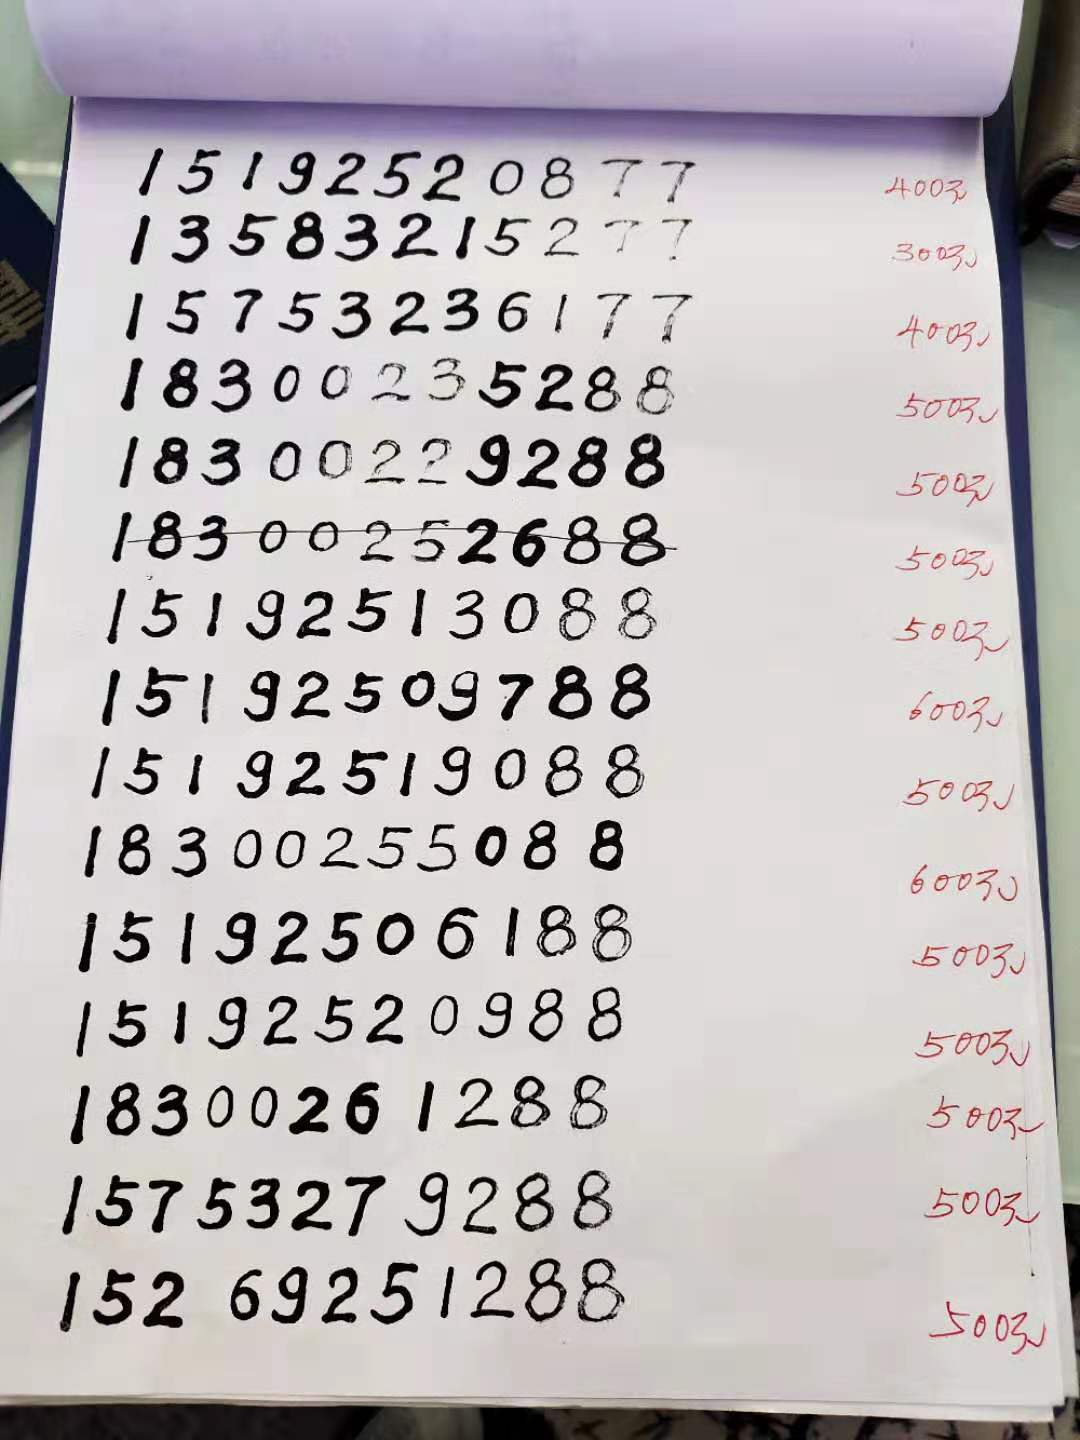 15192520877 400ɜν
13583215277 300ɜν
15753236177 400ɜν
18300235288 500ɜν
18300229288 500ɜν
18300252688 500ɜν
15192513088 500ɜν
15192509788 600ɜν
15192519088 500ɜν
18300255088 600ɜν
15192506188 500ɜν
15192520988 500ɜν
18300261288 500ɜν
15753279288 500ɜν
15269251288 500ɜν